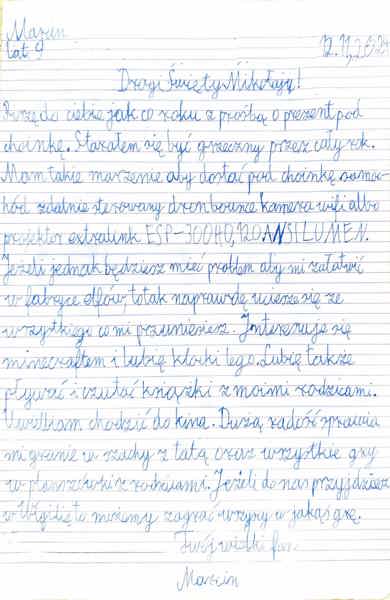 Marcin
lat 9
12.11.2024
Drogi Święty Mikołaju!
Piszę do ciebie jak co roku z prośbą o prezent pod
choinkę. Starałem się być grzeczny przez cały rok.
Mam takie marzenie aby dostać pod choinkę samo-
hód zdalnie sterowany dron bounce kamera wifi albo
projektor extralink ESP-300HD, 120 ANSILUMEN.
Jeżeli jednak będziesz mieć problem aby mi załatwić
w fabryce elfów, to tak naprawdę ucieszę się ze
wszystkiego co mi przyniesiesz. Interesuję się
minecraftem i lubię klocki lego. Lubię także
pływać i czytać książki z moimi rodzicami.
Uwielbiam chodzić do kina. Dużą radość sprawia
mi granie w szachy z tatą oraz wszystkie gry
w planszówki z rodzicami. Jeżeli do nas przyjdziesz
w Wigilię to możemy zagrać wszyscy w jakąś grę.
Twój wielki fan.
Marcin